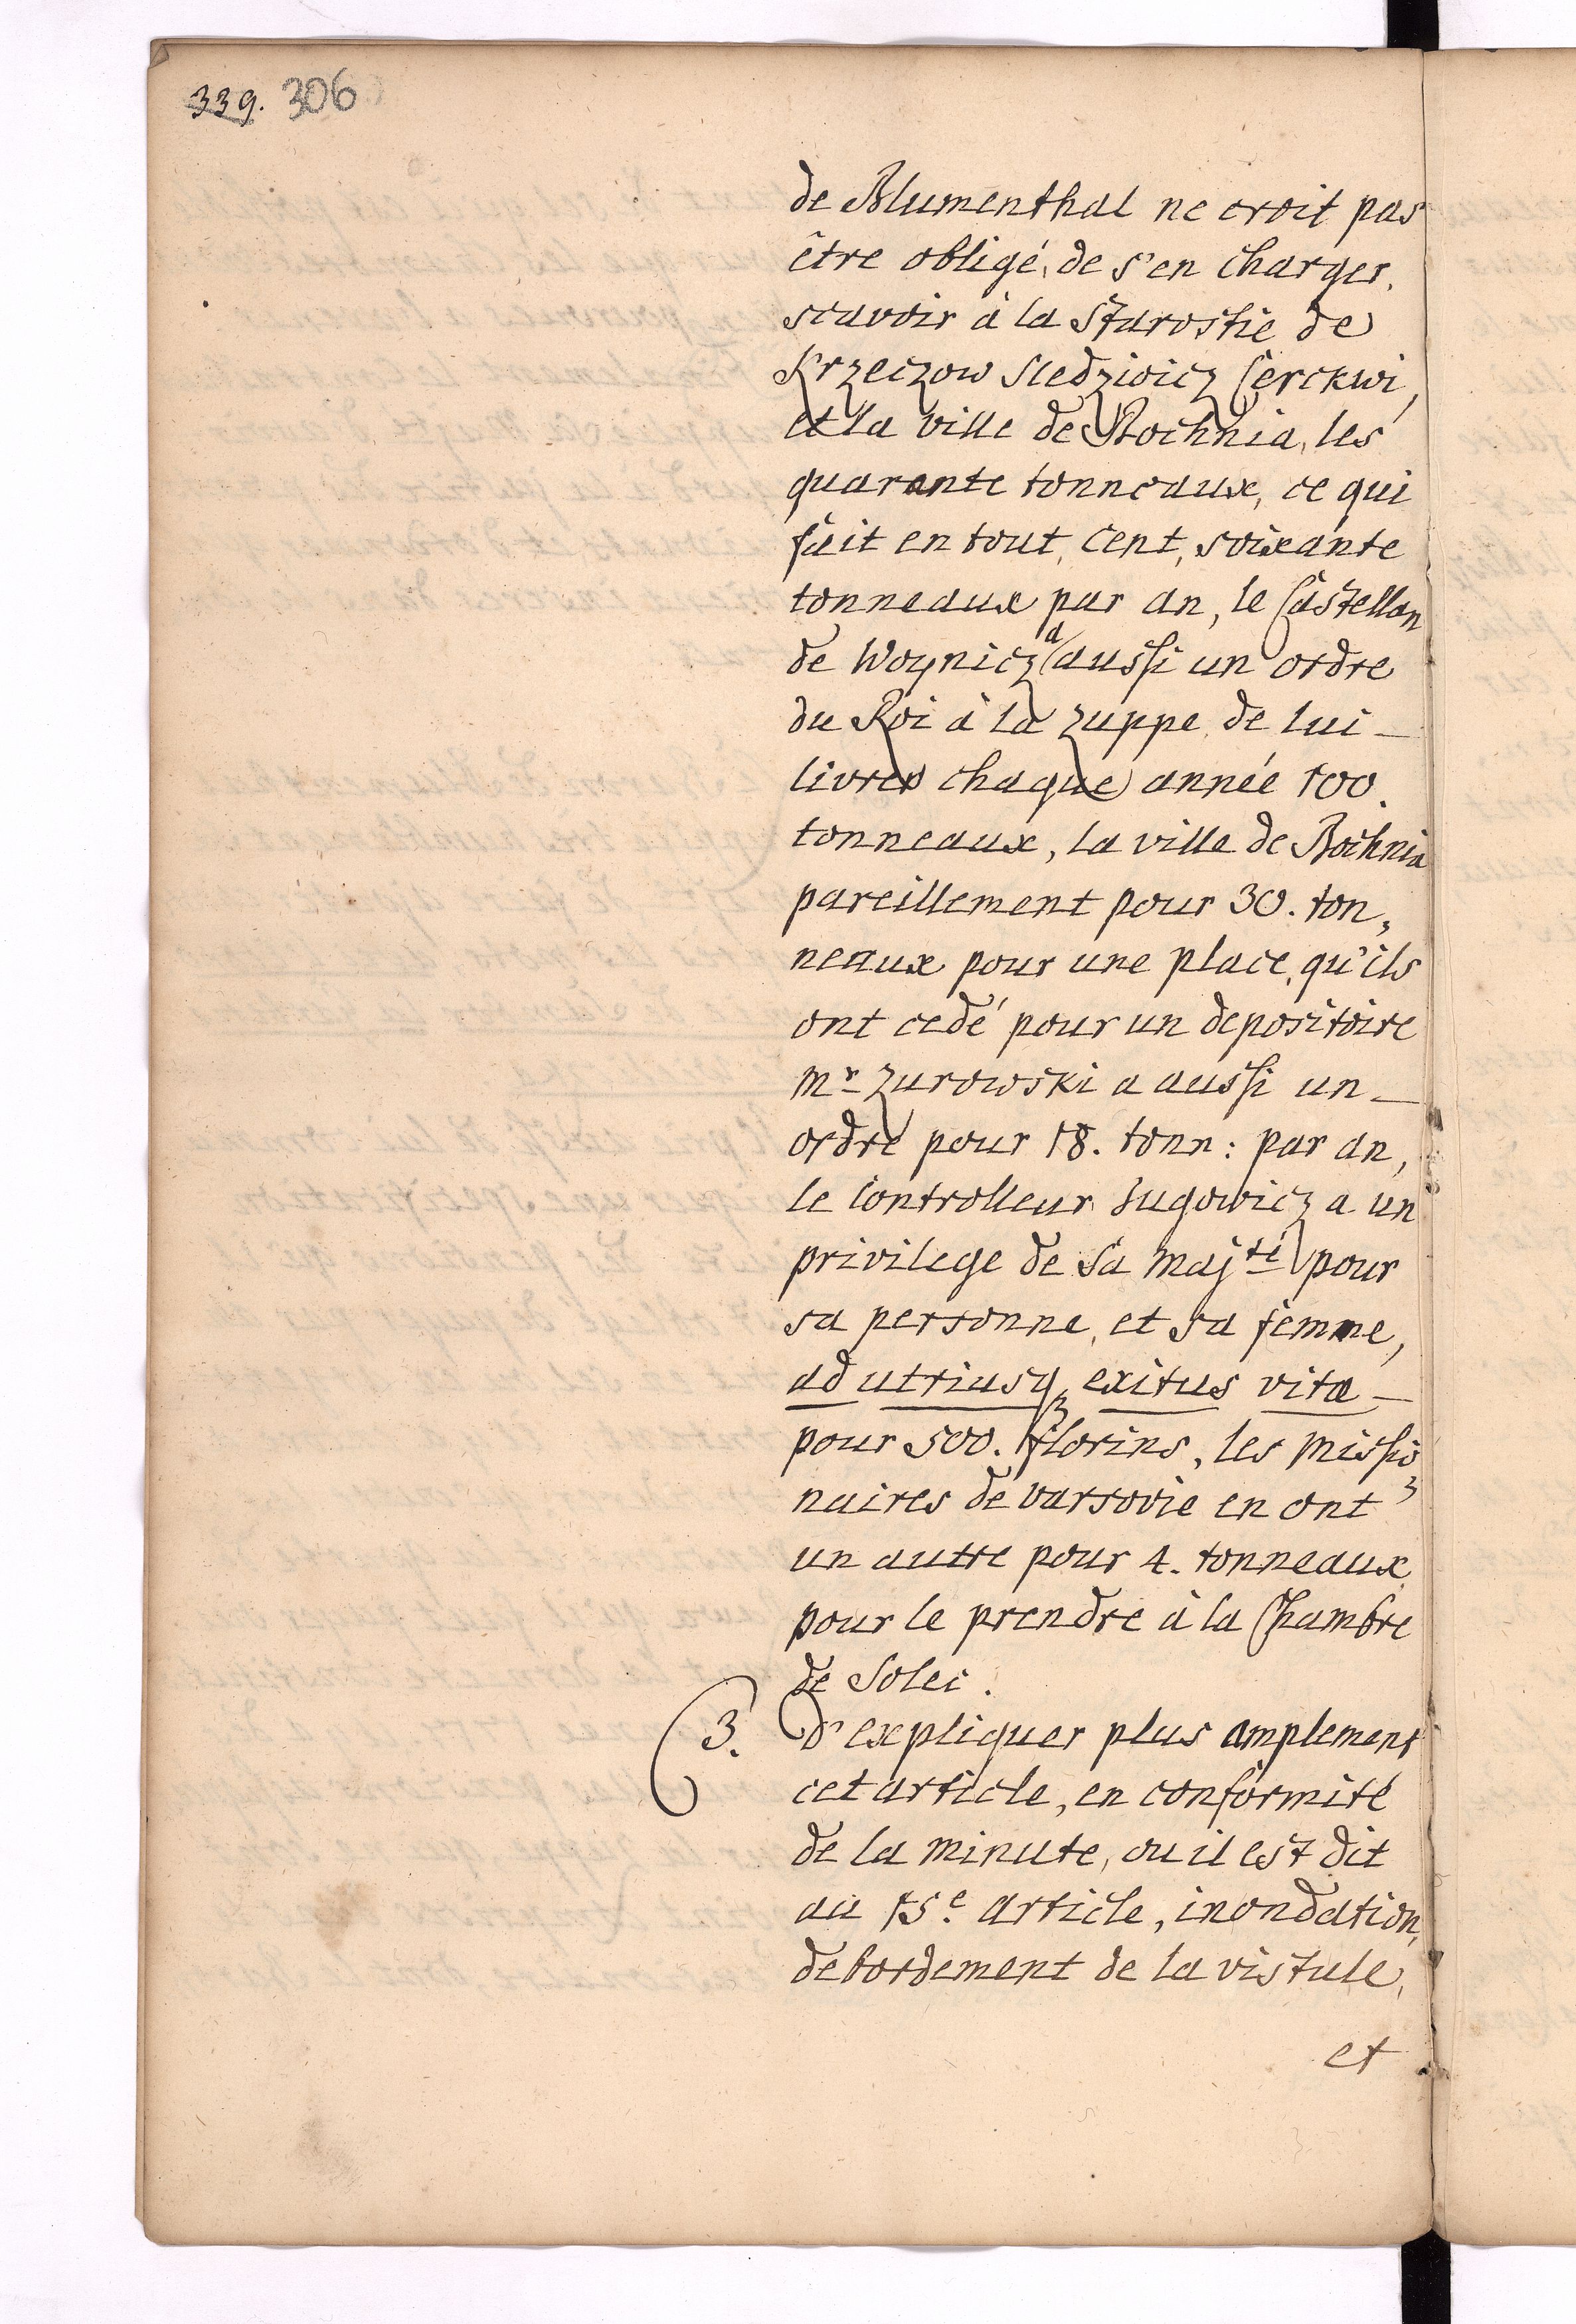 339. 306
de Blumenthal ne croit pas
être obligé, de s'en charger.
scavoir à la Starostie de
Krzeczow Sledziwicz Cerckwi,
et la ville de Bochnia, les
quarante tonneaux, ce qui
fait en tout, cent, soixante
tonneaux par an, le Castellan
de Woynicz a aussi un ordre
du Roi à la zuppe de lui
livrer chaque année 100.
tonneaux, la ville de Bochnia
pareillement pour 30. ton,
neaux pour une place, qu'ils
ont cedé pour un depositoire
Mr Zurowski a aussi un
ordre pour 18. tonn: par an,
le Controlleur Lugowicz a un
privilege de Sa Majté pour
sa personne, et sa femme,
ad utriusq exitus vitæ
pour 500. florins, les Missio
naires de varsovie en ont
un autre pour 4. tonneaux
pour le prendre à la Chambre
de Solec.
3. D'expliquer plus amplement
cet article, en conformité
de la minute, ou il est dit
au 15e. article, inondation,
debordement de la vistule,
et